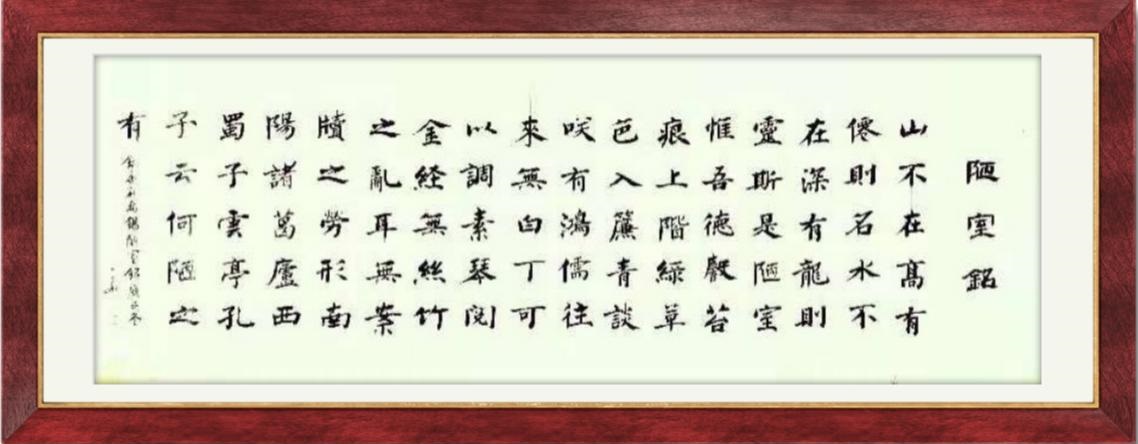 陋室銘
山不在髙有
僊則名水不
在深有龍則
靈斯是陋室
惟吾德馨苔
痕上階緑草
色入簾青談
咲有鴻儒往
來無白丁可
以調素琴閱
金経無絲竹
之亂耳無案
牘之勞形南
陽諸葛廬西
蜀子雲亭孔
子云何陋之
有
禹錫陋室銘